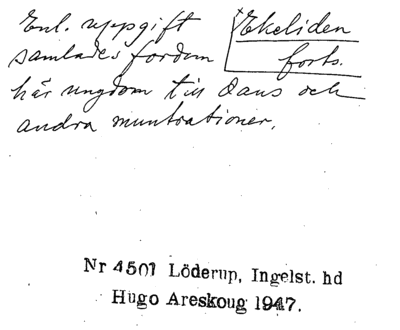 Enl. uppgift
Ekeliden
samlades fordom
forts.
här ungdom till dans och
andra muntrationer.
Nr 4501 Löderup, Ingelst. hd
Hugo Areskoug 1947.